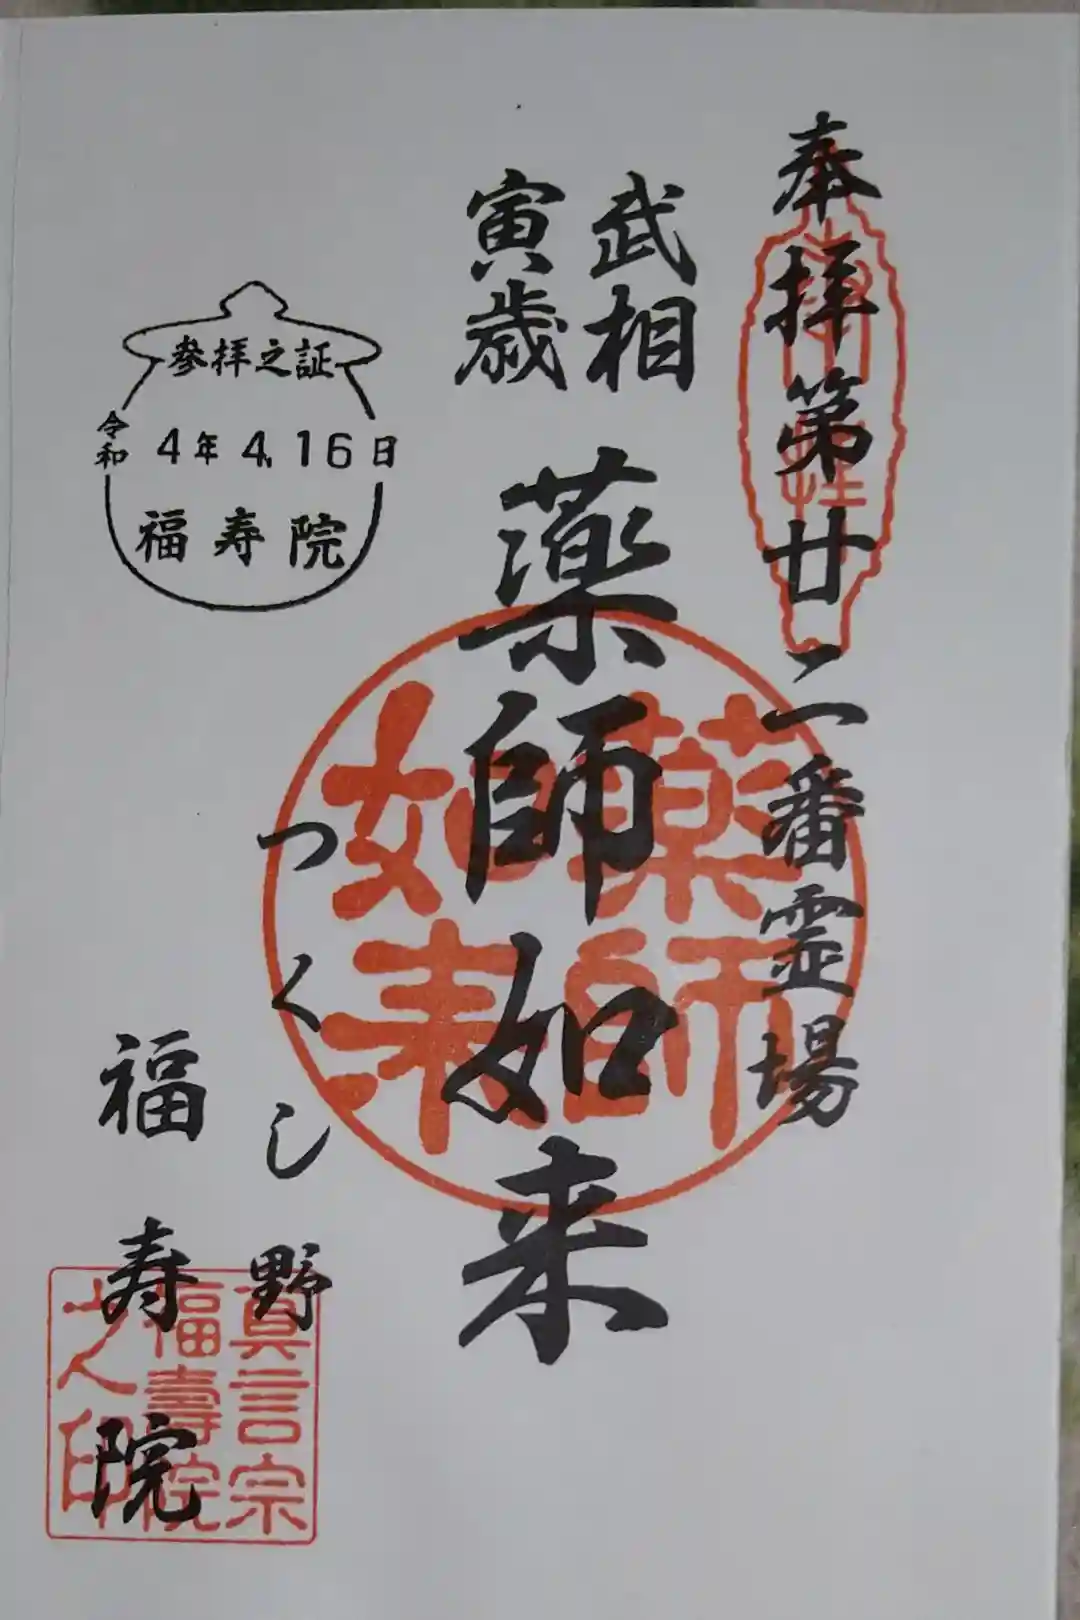 奉拝第廿二番霊場
武相
寅歳
薬師如来
薬師
如来
つくし野
福寿院
参拝之証
令和4年4.16日
福寿院
真言宗
福壽院
之印